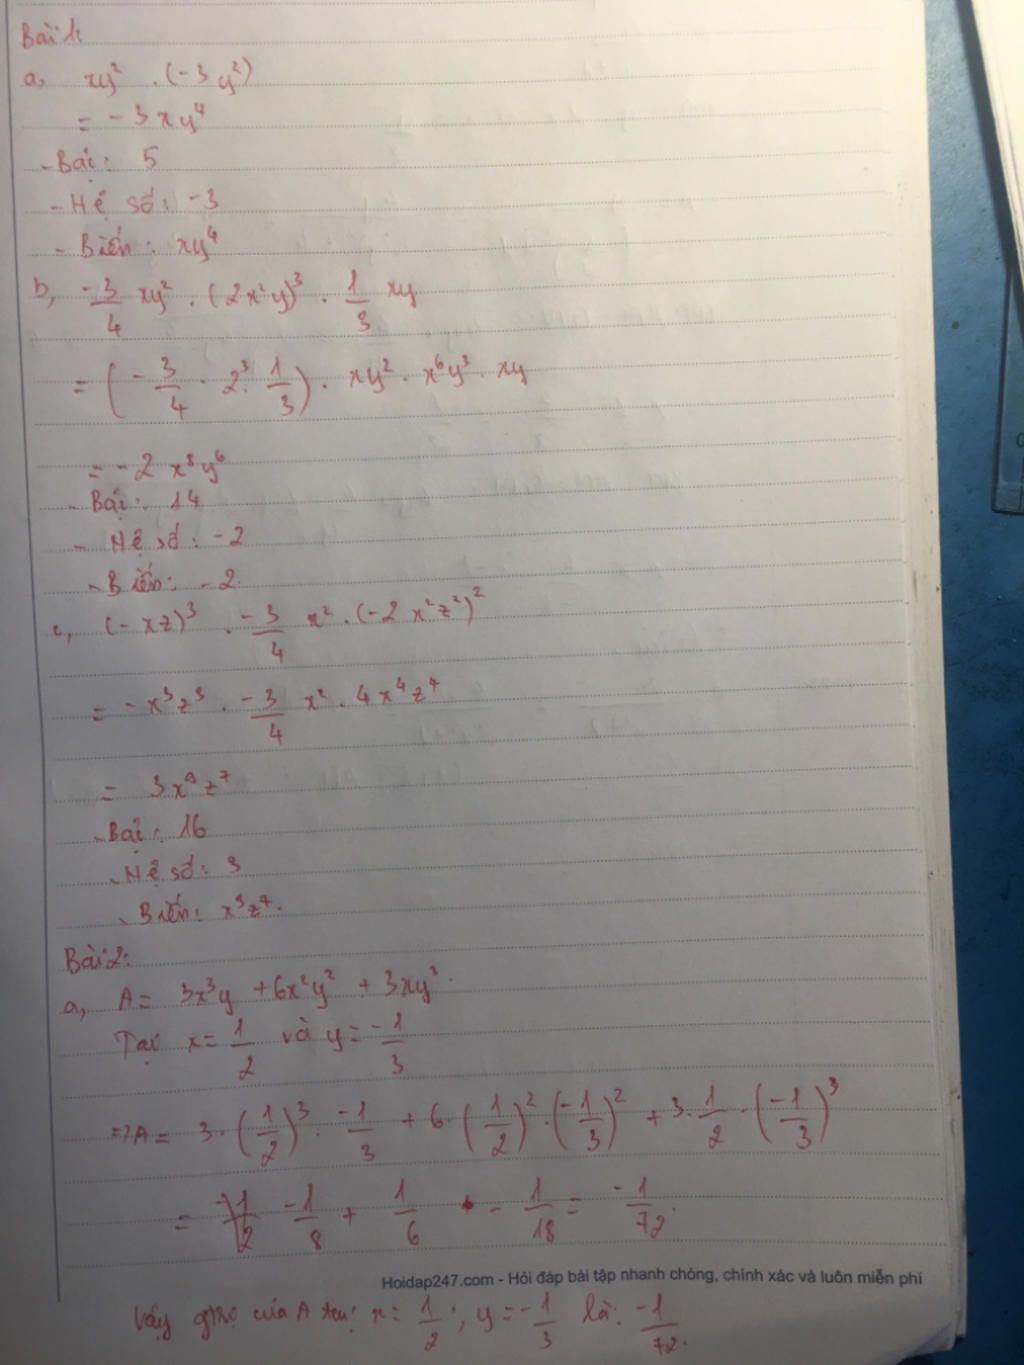 Bài 1:
a, xy² . (-3y²)
= -3xy⁴
- Bậc: 5
- Hệ số: -3
- Biến: xy⁴
b, -3/4 xy² . (2x²y)³ . 1/3 xy
= (-3/4 . 2³ . 1/3) . xy² . x⁶y³ . xy
= -2 x⁸y⁶
- Bậc: 14
- Hệ số: -2
- Biến: -2
c, (-xz)³ . -3/4 x² . (-2x²z²)²
= -x³z³ . -3/4 x² . 4x⁴z⁴
= 3x⁹z⁷
- Bậc: 16
- Hệ số: 3
- Biến: x⁹z⁷.
Bài 2:
a, A = 3x³y + 6x²y² + 3xy³
Tại x = 1/2 và y = -1/3
=> A = 3 . (1/2)³ . -1/3 + 6 . (1/2)² . (-1/3)² + 3 . 1/2 . (-1/3)³
= -1/8 + 1/6 - 1/18 = -1/72.
Hoidap247.com - Hỏi đáp bài tập nhanh chóng, chính xác và luôn miễn phí
Vậy gtrị của A tại: x = 1/2; y = -1/3 là: -1/72.